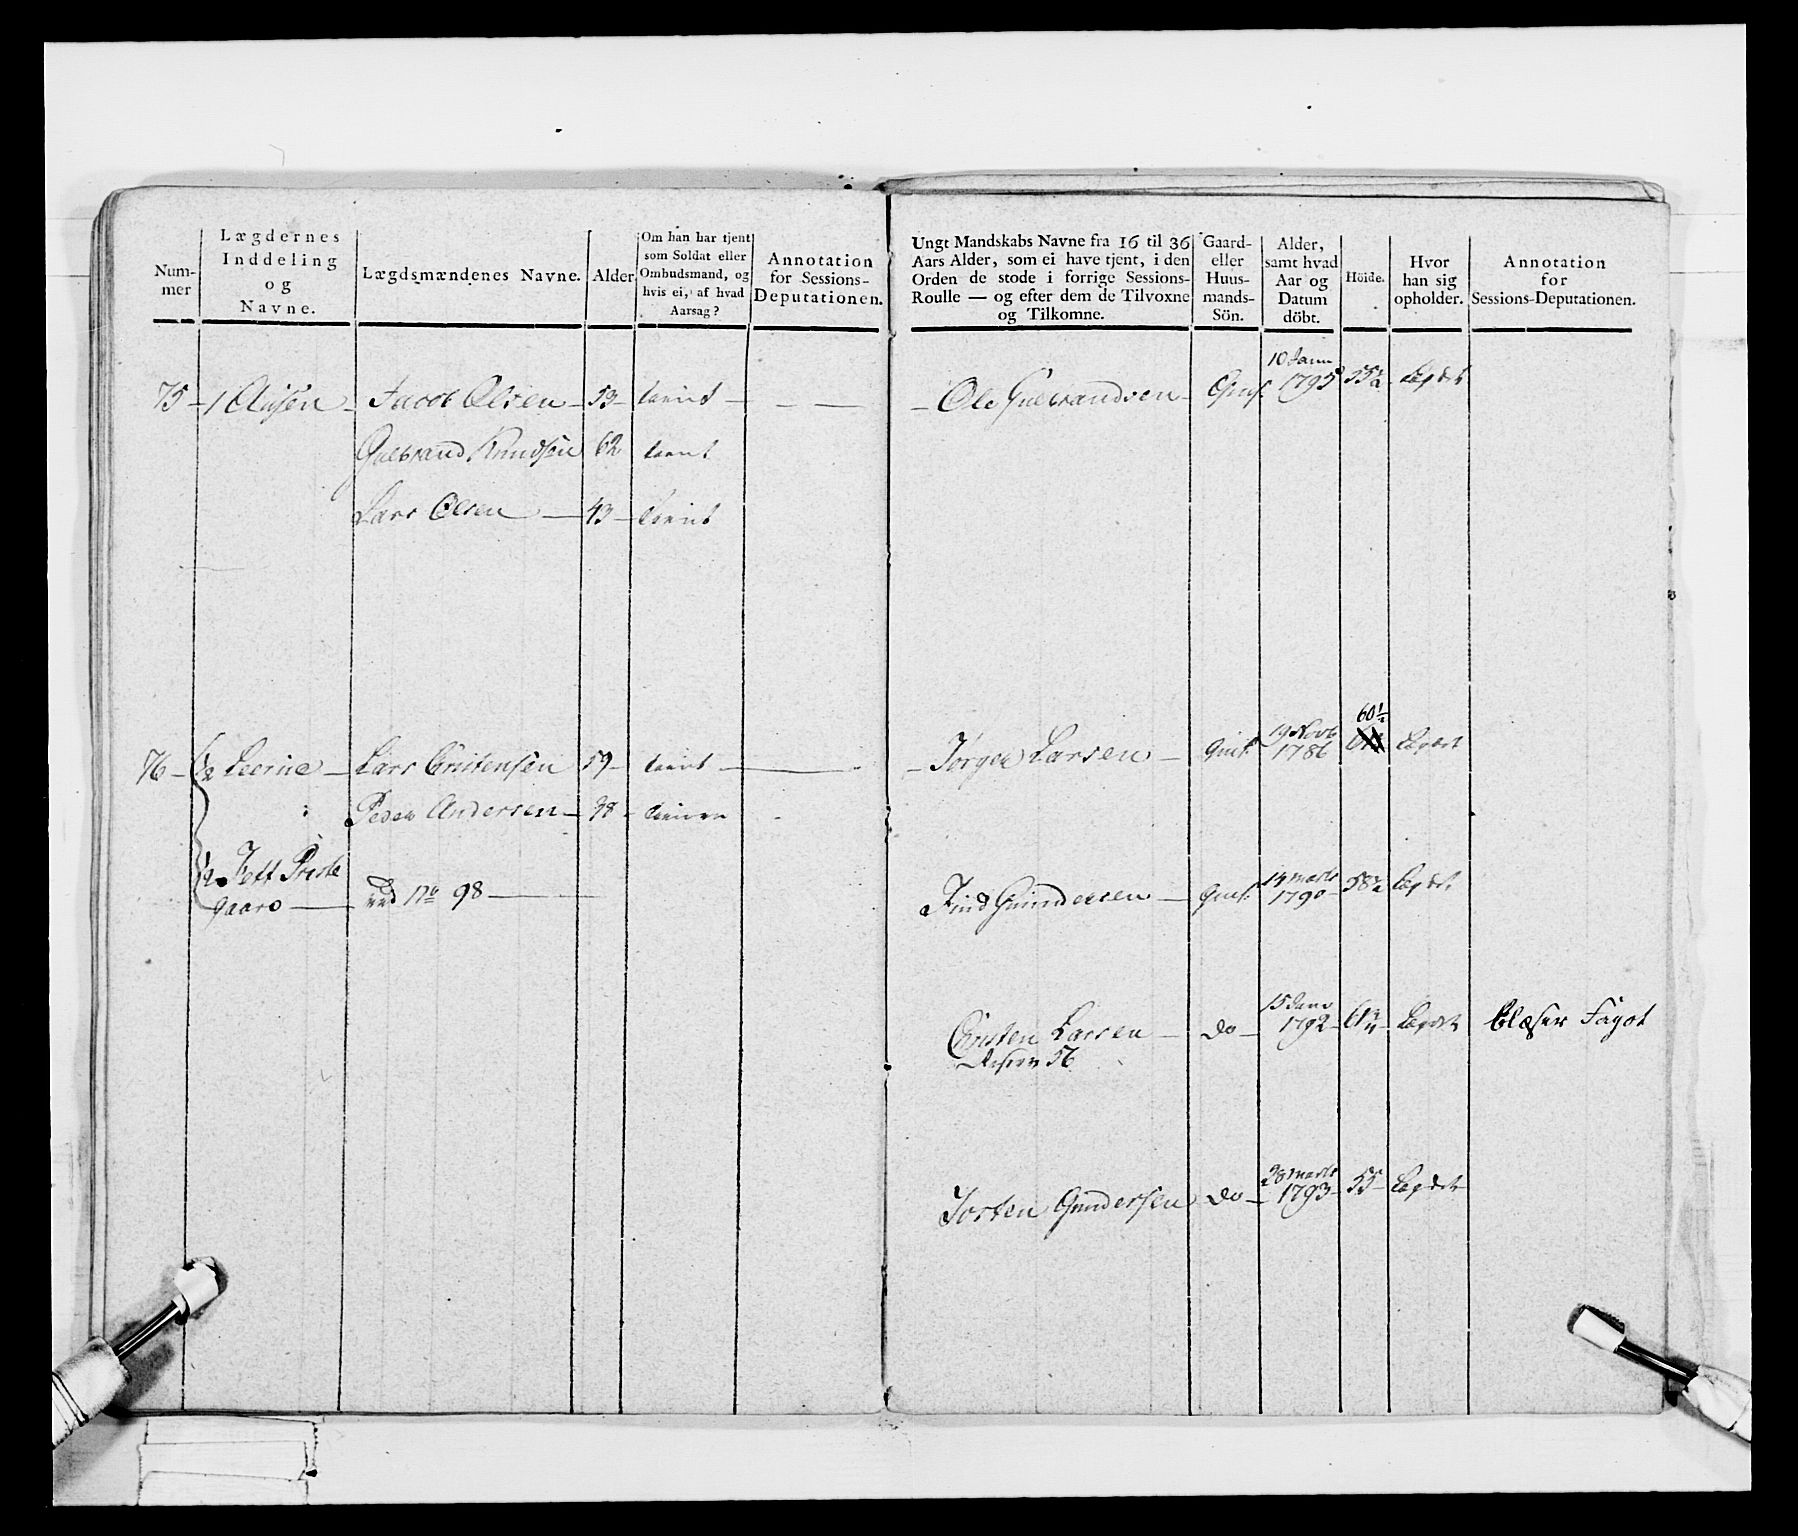 Num-
mer
Lægdernes
Inddeling
og
Navne.
Lægdsmændenes Navne.
Alder
Om han har tjent
som Soldat eller
Ombudsmand, og
hvis ei, af hvad
Aarsag?
Annotation
for Sessions-
Deputationen.
Ungt Mandskabs Navne fra 16 til 36
Aars Alder, som ei have tjent, i den
Orden de stode i forrige Sessions-
Roulle — og efter dem de Tilvoxne
og Tilkomne.
Gaard-
eller
Huus-
mands-
Sön.
Alder,
samt hvad
Aar og
Datum
döbt.
Höide.
Hvor
han sig
opholder.
Annotation
for
Sessions-Deputationen.
75 - 1 Jacob Olsen - 53 - tient - — Ole Gulbrandsen - Gmf. 10 Janu 1795 55 1/2 Lægdet
Gulbrand Knudsen 62 tient
Lars Olsen — 43 - tient
76 - 1/2 Leerine - Lars Cristensen 59 - tient — Jørgen Larsen - Gmf. 19 Novb 1786 60 1/2 Lægdet
Peder Andersen - 38 -
1/2 Tott Preste
gaard — ved No 98 — Find Gundersen - Gmf. 14 Marts 1790 - 58 1/2 Lægdet
Christen Larsen - do - 15 Janu 1792 - 61 Lægdet Blæser Fagot
56
Torsten Gundersen do - 28 Marts 1793 - 55 - Lægdet